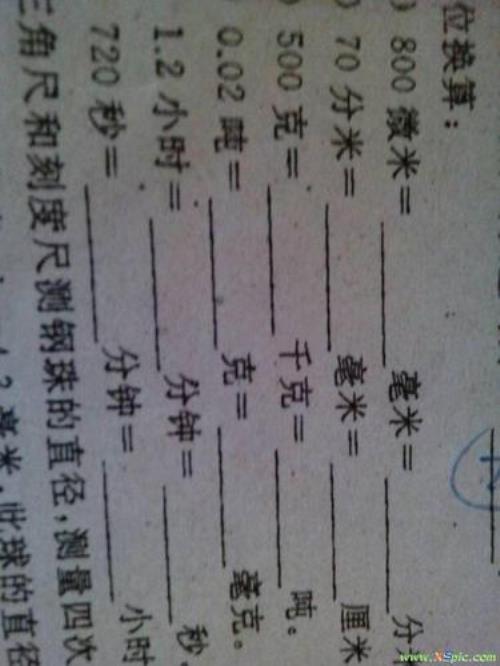 位换算：
) 800 微米= ______ 毫米= ______ 分
) 70 分米= ______ 毫米= ______ 厘米
) 500 克= ______ 千克= ______ 吨。
0.02 吨= ______ 克= ______ 毫克。
1.2 小时= ______ 分钟= ______ 秒
720 秒= ______ 分钟= ______ 小时
三角尺和刻度尺测钢珠的直径，测量四次
毫米，此球的直径
www.XSpic.com